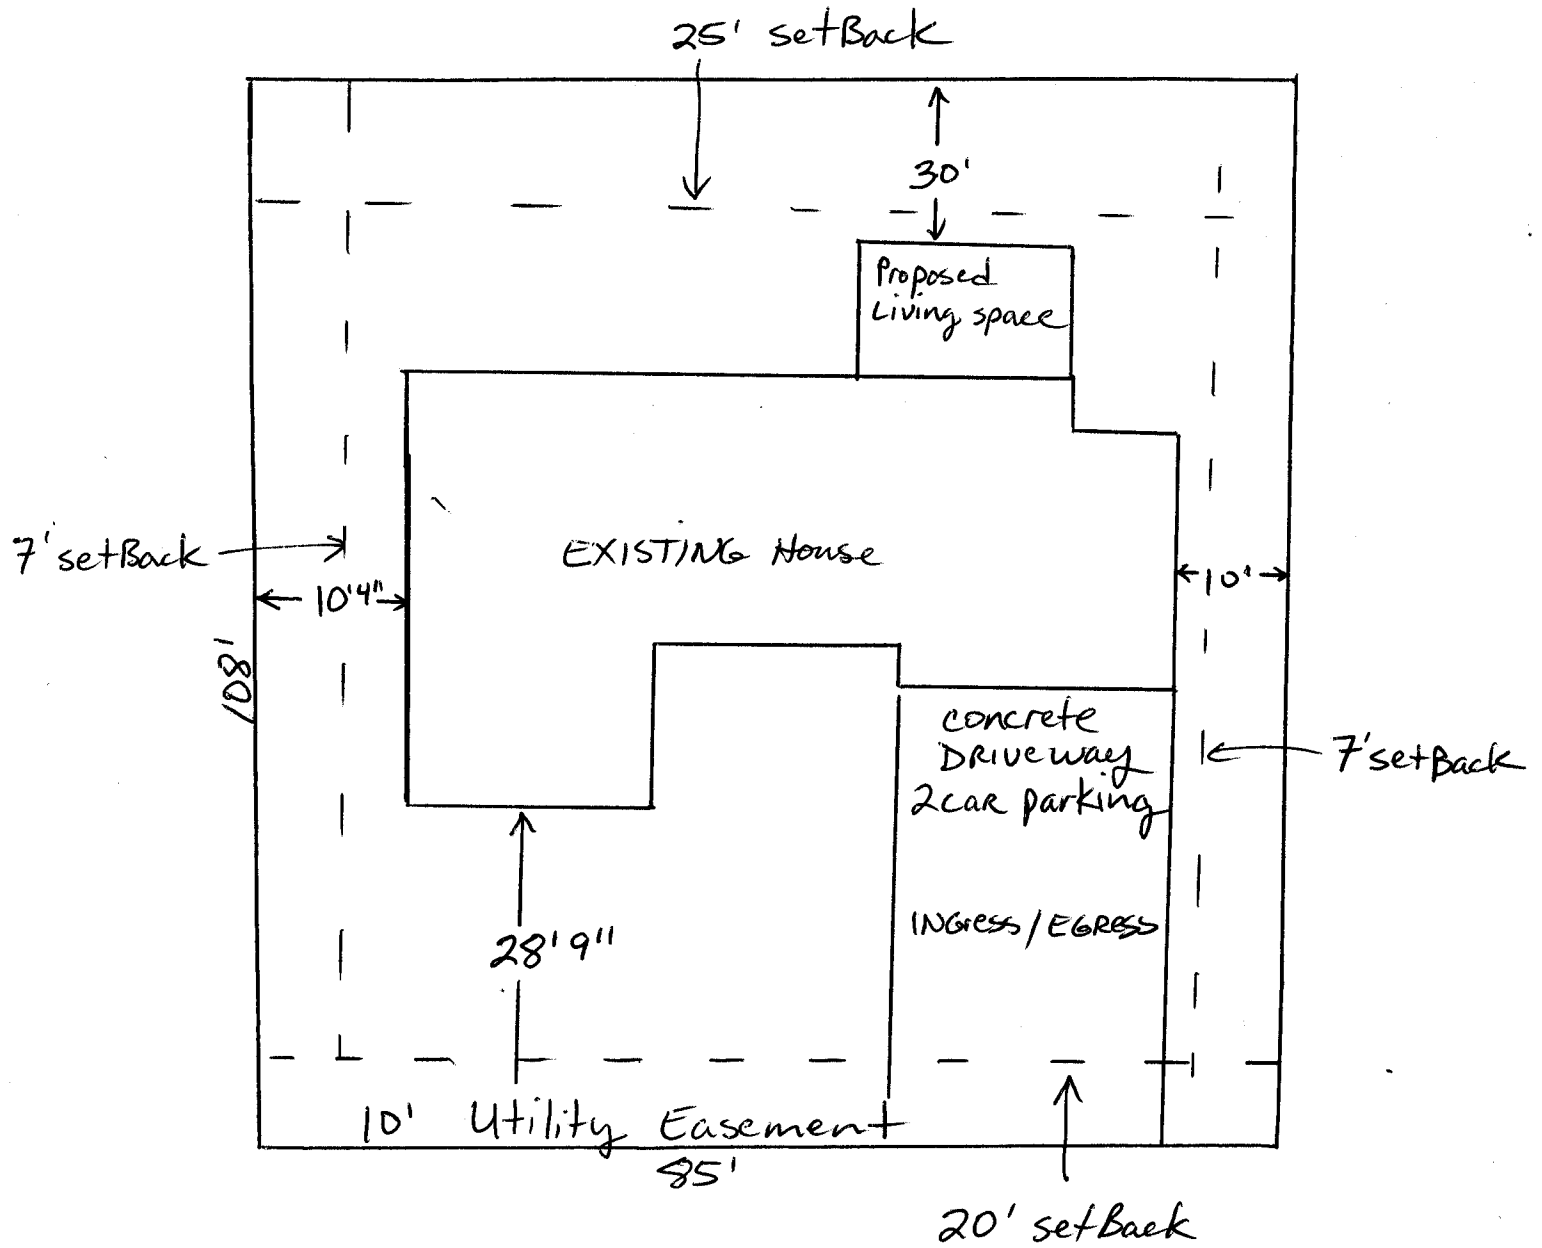 25' setBack
30'
Proposed
Living space
7' setBack
EXISTING House
10'4"
10'
108'
concrete
DRIVEWAY
2 CAR parking
7' setBack
INGress / EGRess
28' 9"
10' Utility Easement
85'
20' setBack